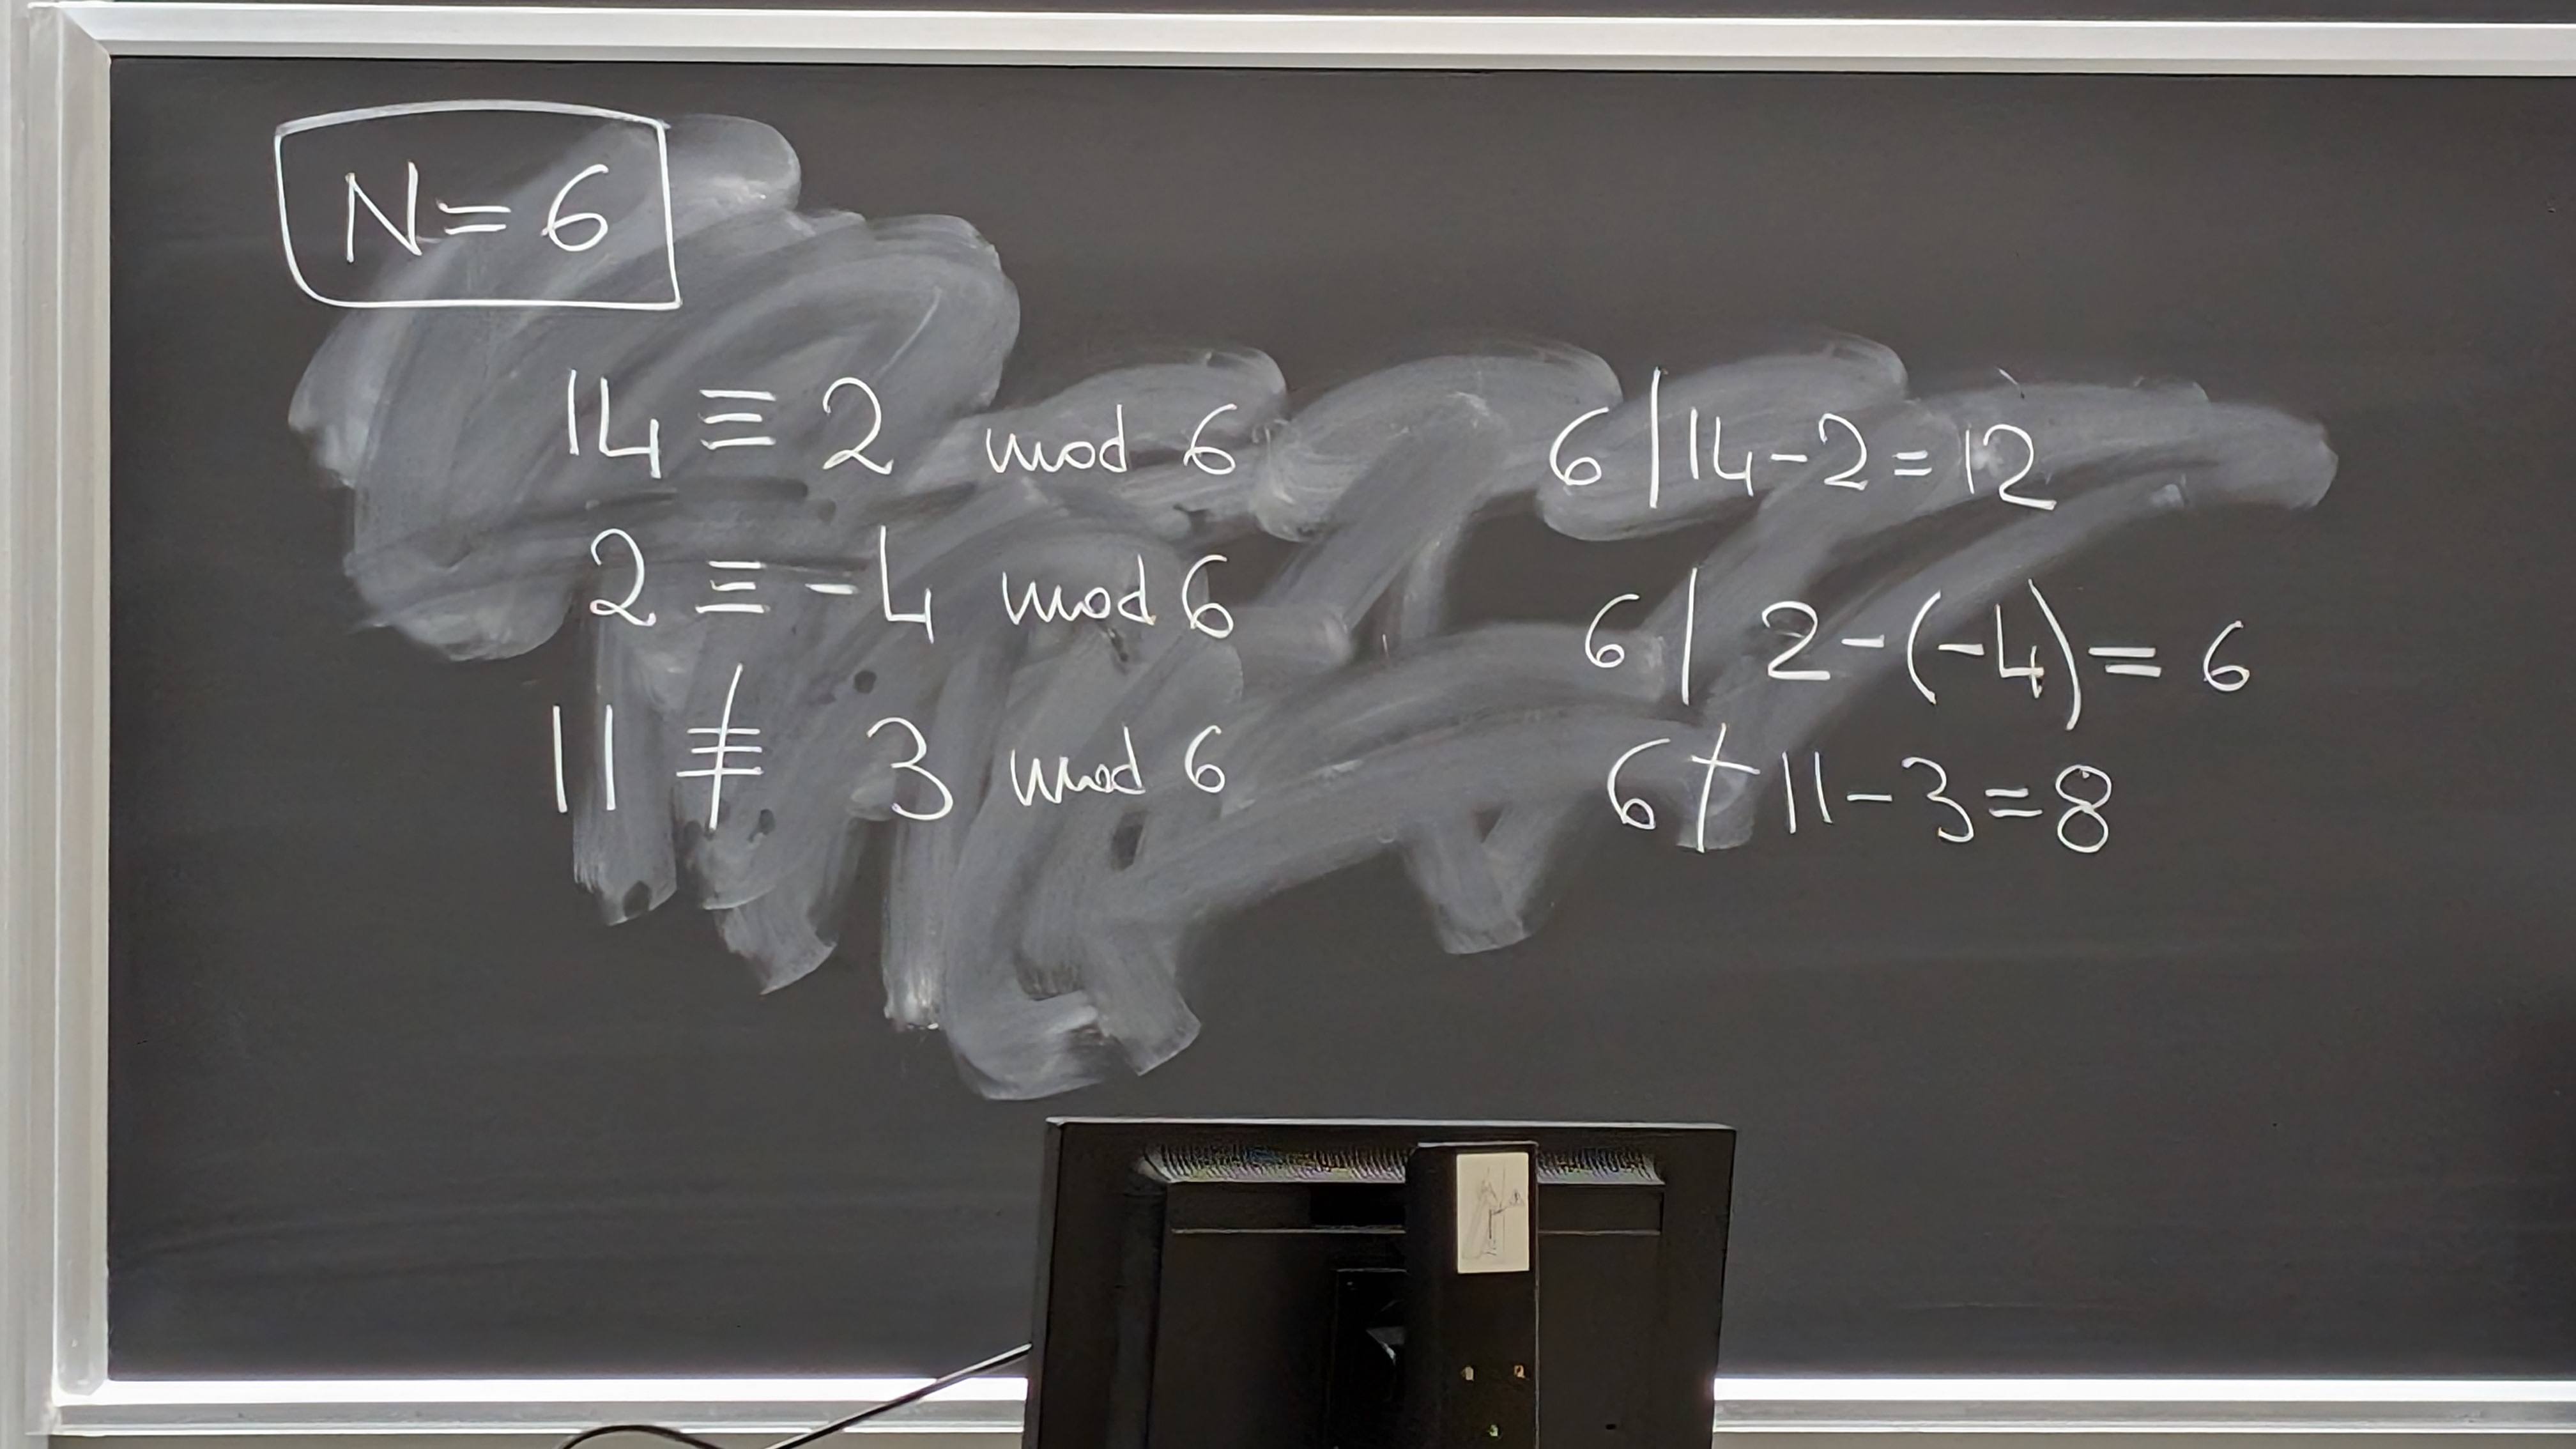 N = 6
14 ≡ 2 mod 6 6 | 14 - 2 = 12
2 ≡ -4 mod 6 6 | 2 - (-4) = 6
11 ≢ 3 mod 6 6 ∤ 11 - 3 = 8